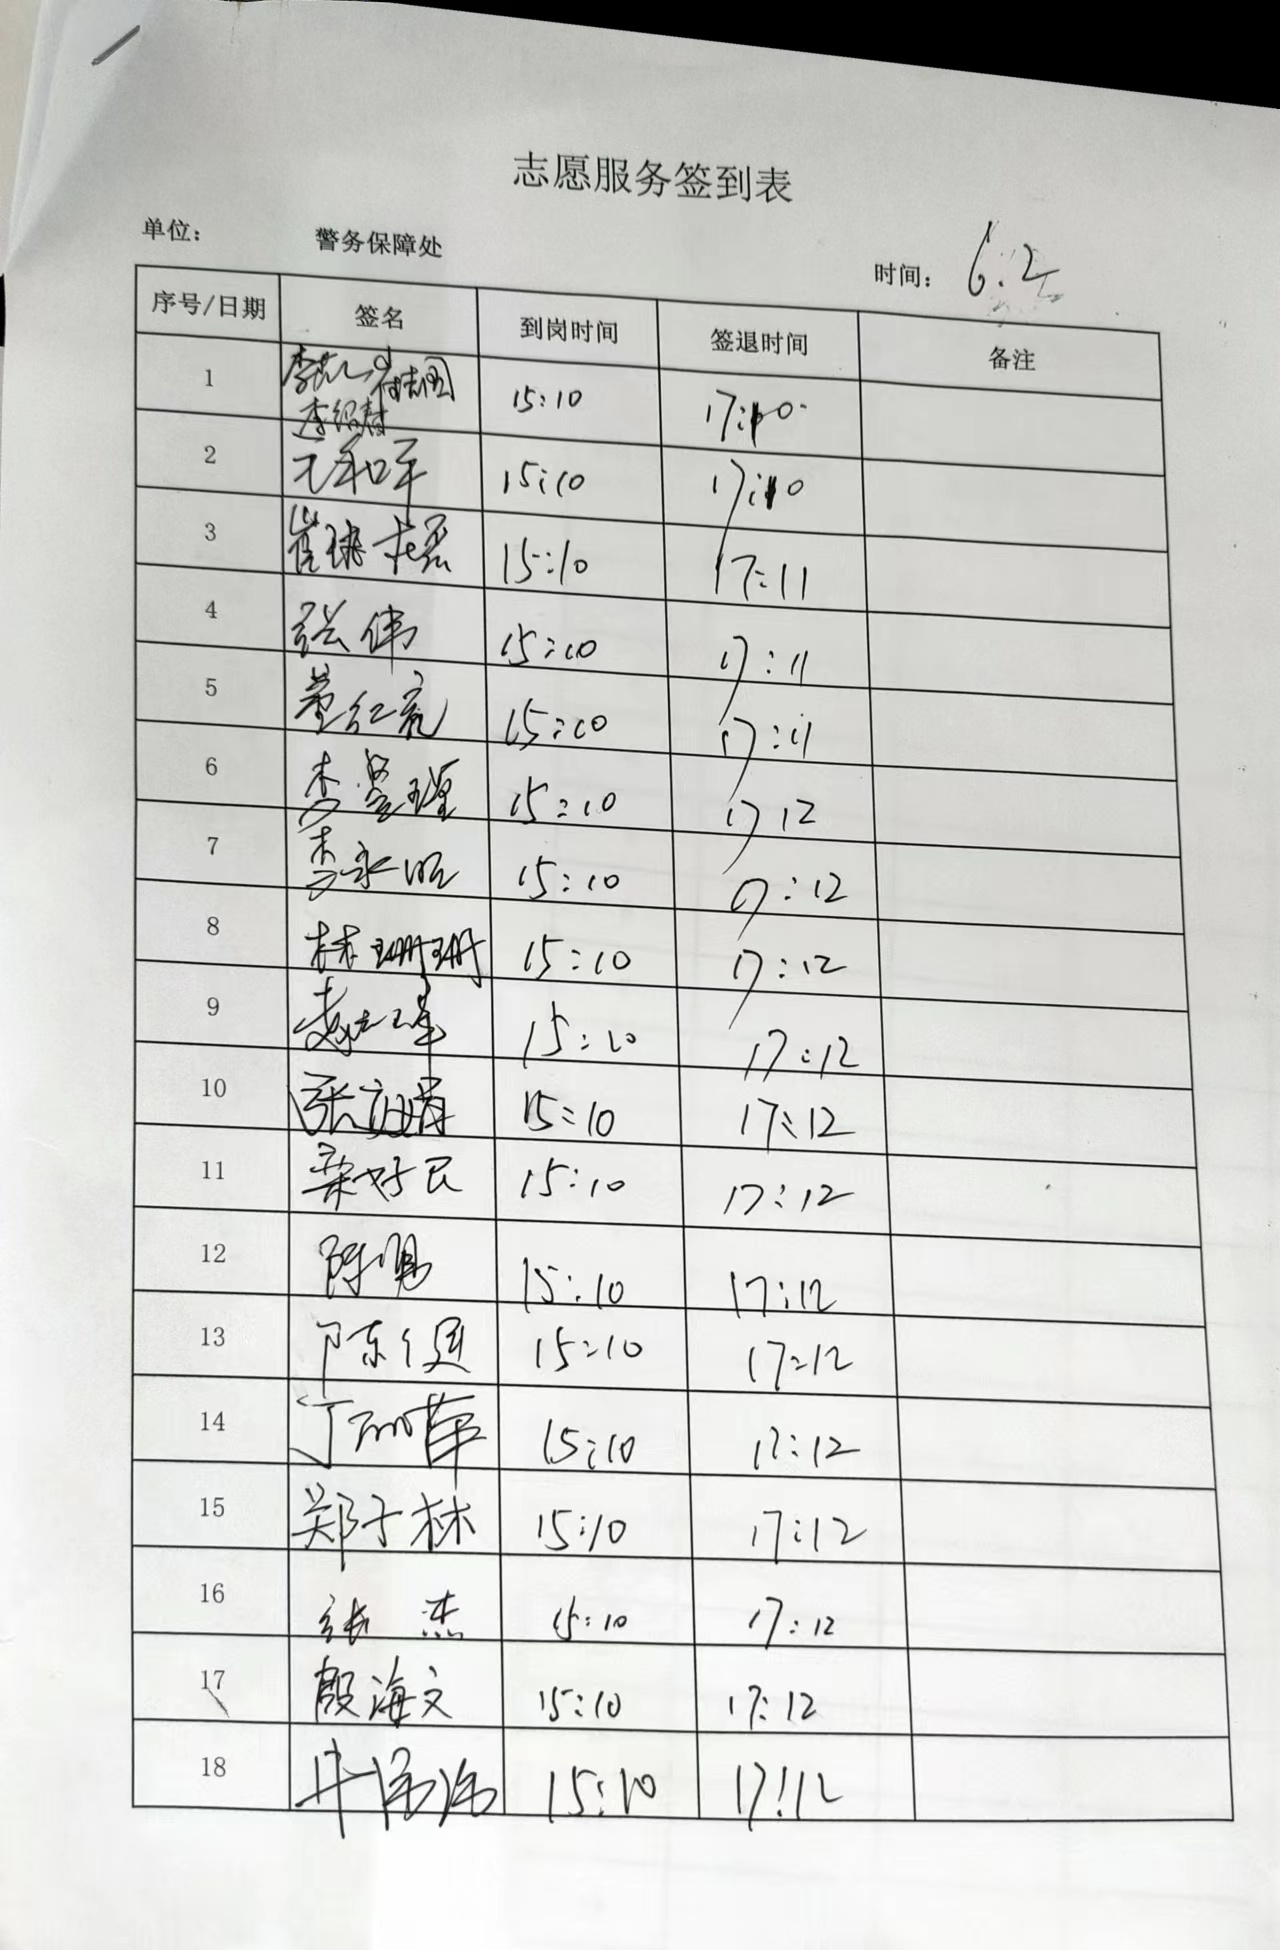 志愿服务签到表
单位： 警务保障处 时间： 6.2
序号/日期 签名 到岗时间 签退时间 备注
1 15:10 17:10
李绍春
2 亓和平 15:10 17:10
3 崔琳 15:10 17:11
4 张伟 15:10 17:11
5 董红亮 15:10 17:11
6 李 15:10 17 12
7 李永 15:10 17:12
8 林珊珊 15:10 17:12
9 15:10 17:12
10 张 15:10 17:12
11 桑好民 15:10 17:12
12 陈勇 15:10 17:12
13 陈 15:10 17:12
14 丁丽萍 15:10 17:12
15 郑子林 15:10 17:12
16 张杰 15:10 17:12
17 殷海文 15:10 17:12
18 牛 15:10 17:12